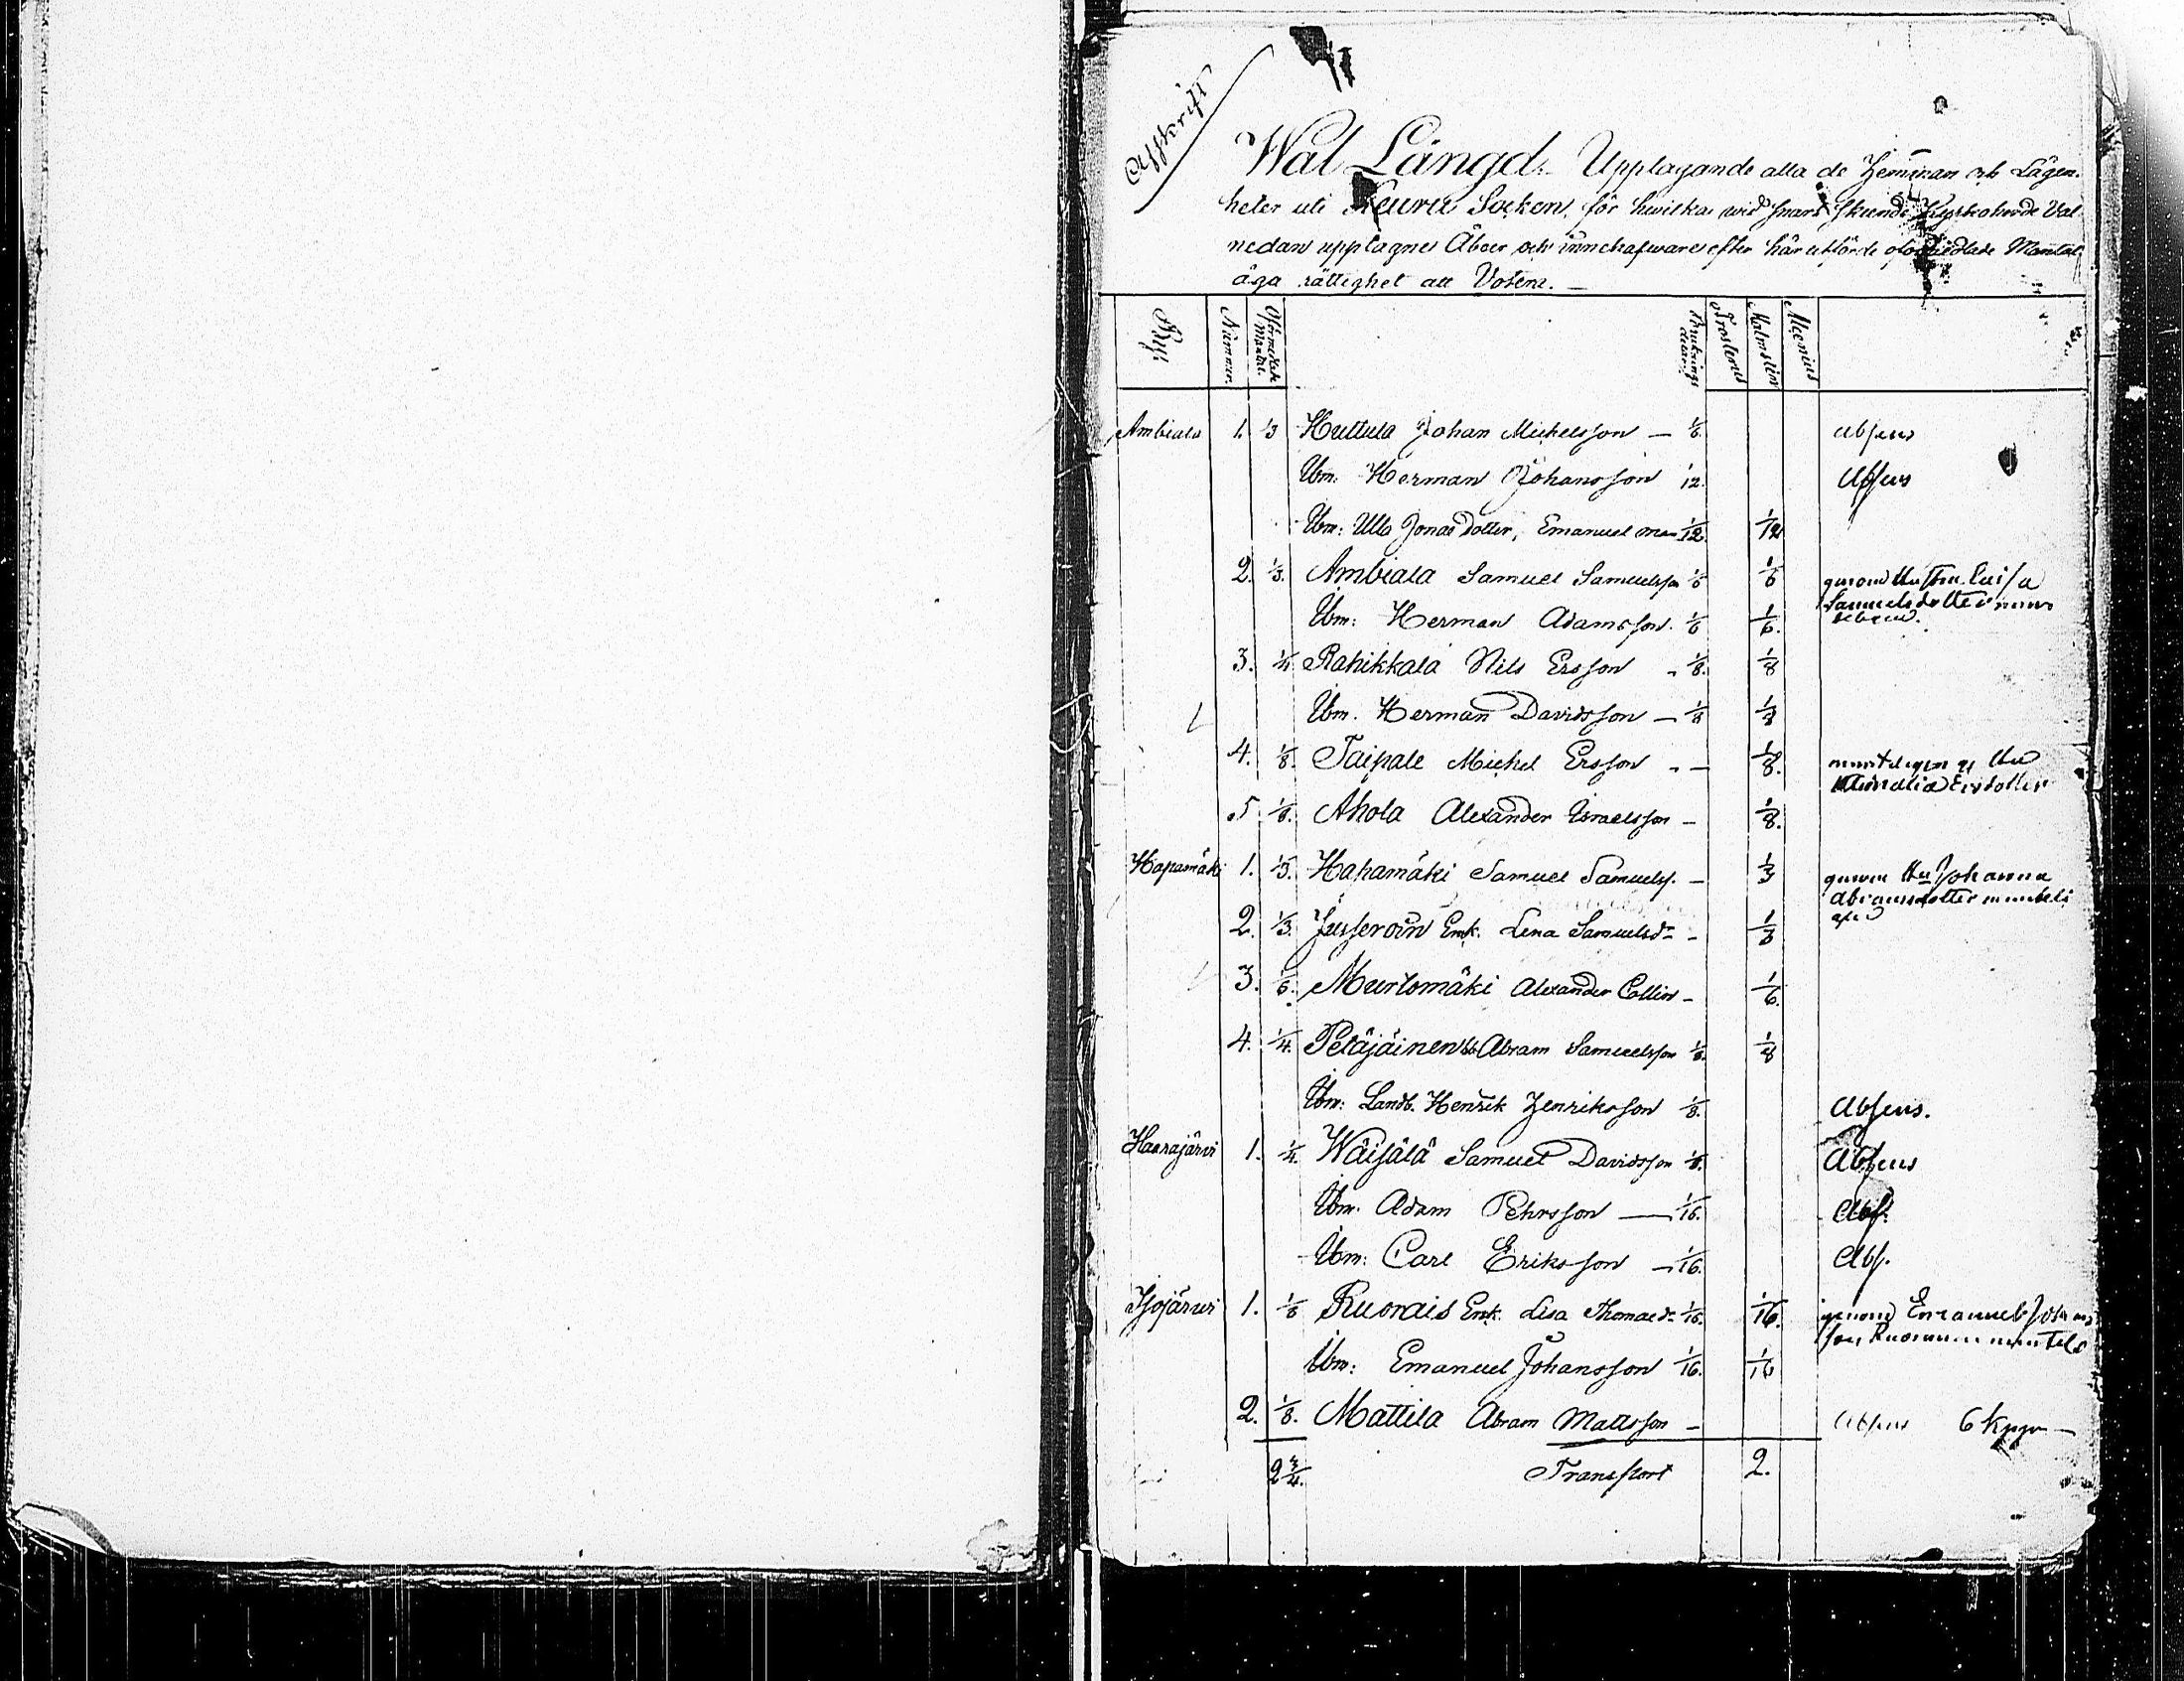 Afskrift
Wal Längd. Upptagande alla de Hemman och Lägen-
heter uti Keuru Socken, för hwilka wid snart skeende Kyrkoherde Val
nedan upptagne Åboer och innehafware efter här utförde oförmedlade Mantal
äga rättighet att Votera.
By. Nummer. Oförmedlade Mantal. Bruknings delar. Frosterus Malmsten Alcenius
Ambiala 1. 1/3 Huttula Johan Michelsson — 1/6. Absens
Ibm: Herman Johansson 12. Absens
Ibm: Ulla Jonaedotter, Emanuel 1/12. 1/12
2. 1/3. Ambiala Samuel Samuelsson 1/6 1/6 genom Hustrun Luisa
Samuelsdotter
Ibm: Herman Adamsson. 1/6 1/6.
3. 1/4 Rahikkala Nils Ersson 1/8. 1/8
Ibm. Herman Davidsson — 1/8 1/8
4. 1/8. Taipale Michel Ersson - — 1/8.
Ersdotter
5 1/8. Ahola Alexander Israelsson - 1/8.
Hapamäki 1. 1/3. Hahamäki Samuel Samuelss. — 1/3 genom Hu Johanna
Abramsdotter
2. 1/3. Enk. Lena Samuelsdr - 1/3
3. 1/6. Murtomäki Alexander Collin - 1/6.
4. 1/4. Petäjäinen Abram Samuelsson 1/8. 1/8
Ibm: Landb. Henrik Henriksson 1/8. Absens.
Haarajärvi 1. 1/4. Wäisälä Samuel Davidsson 1/8. Absens
Ibm. Adam Pehrsson — 1/16. Abs.
Ibm: Carl Eriksson — 1/16. Abs.
Isojärwi 1. 1/8 Ruorais Enk. Lisa Thomaedr 1/16. 1/16. genom Emanuel Johans
son
Ibm: Emanuel Johansson 1/16. 1/16
2. 1/8. Mattila Abram Mattsson - Absens 6 —
2 3/4. Transport 2.